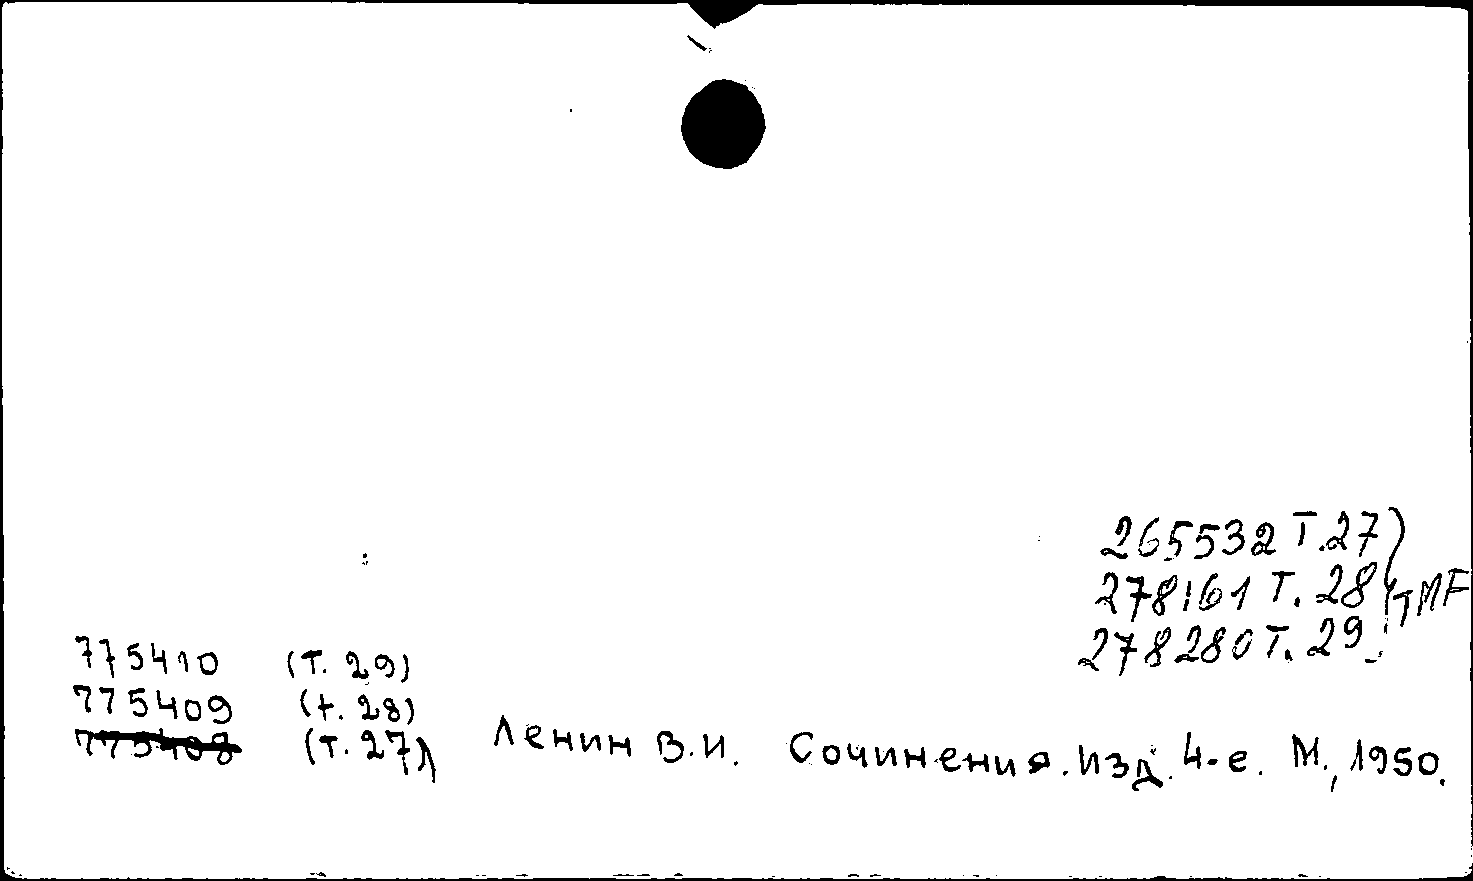 265532 Т.27
278161 Т. 28 TMF
278280 Т. 29
775410 (Т. 29)
775409 (т. 28)
775408 (Т. 27) Ленин В.И. Сочинения. Изд. 4-е. М., 1950.